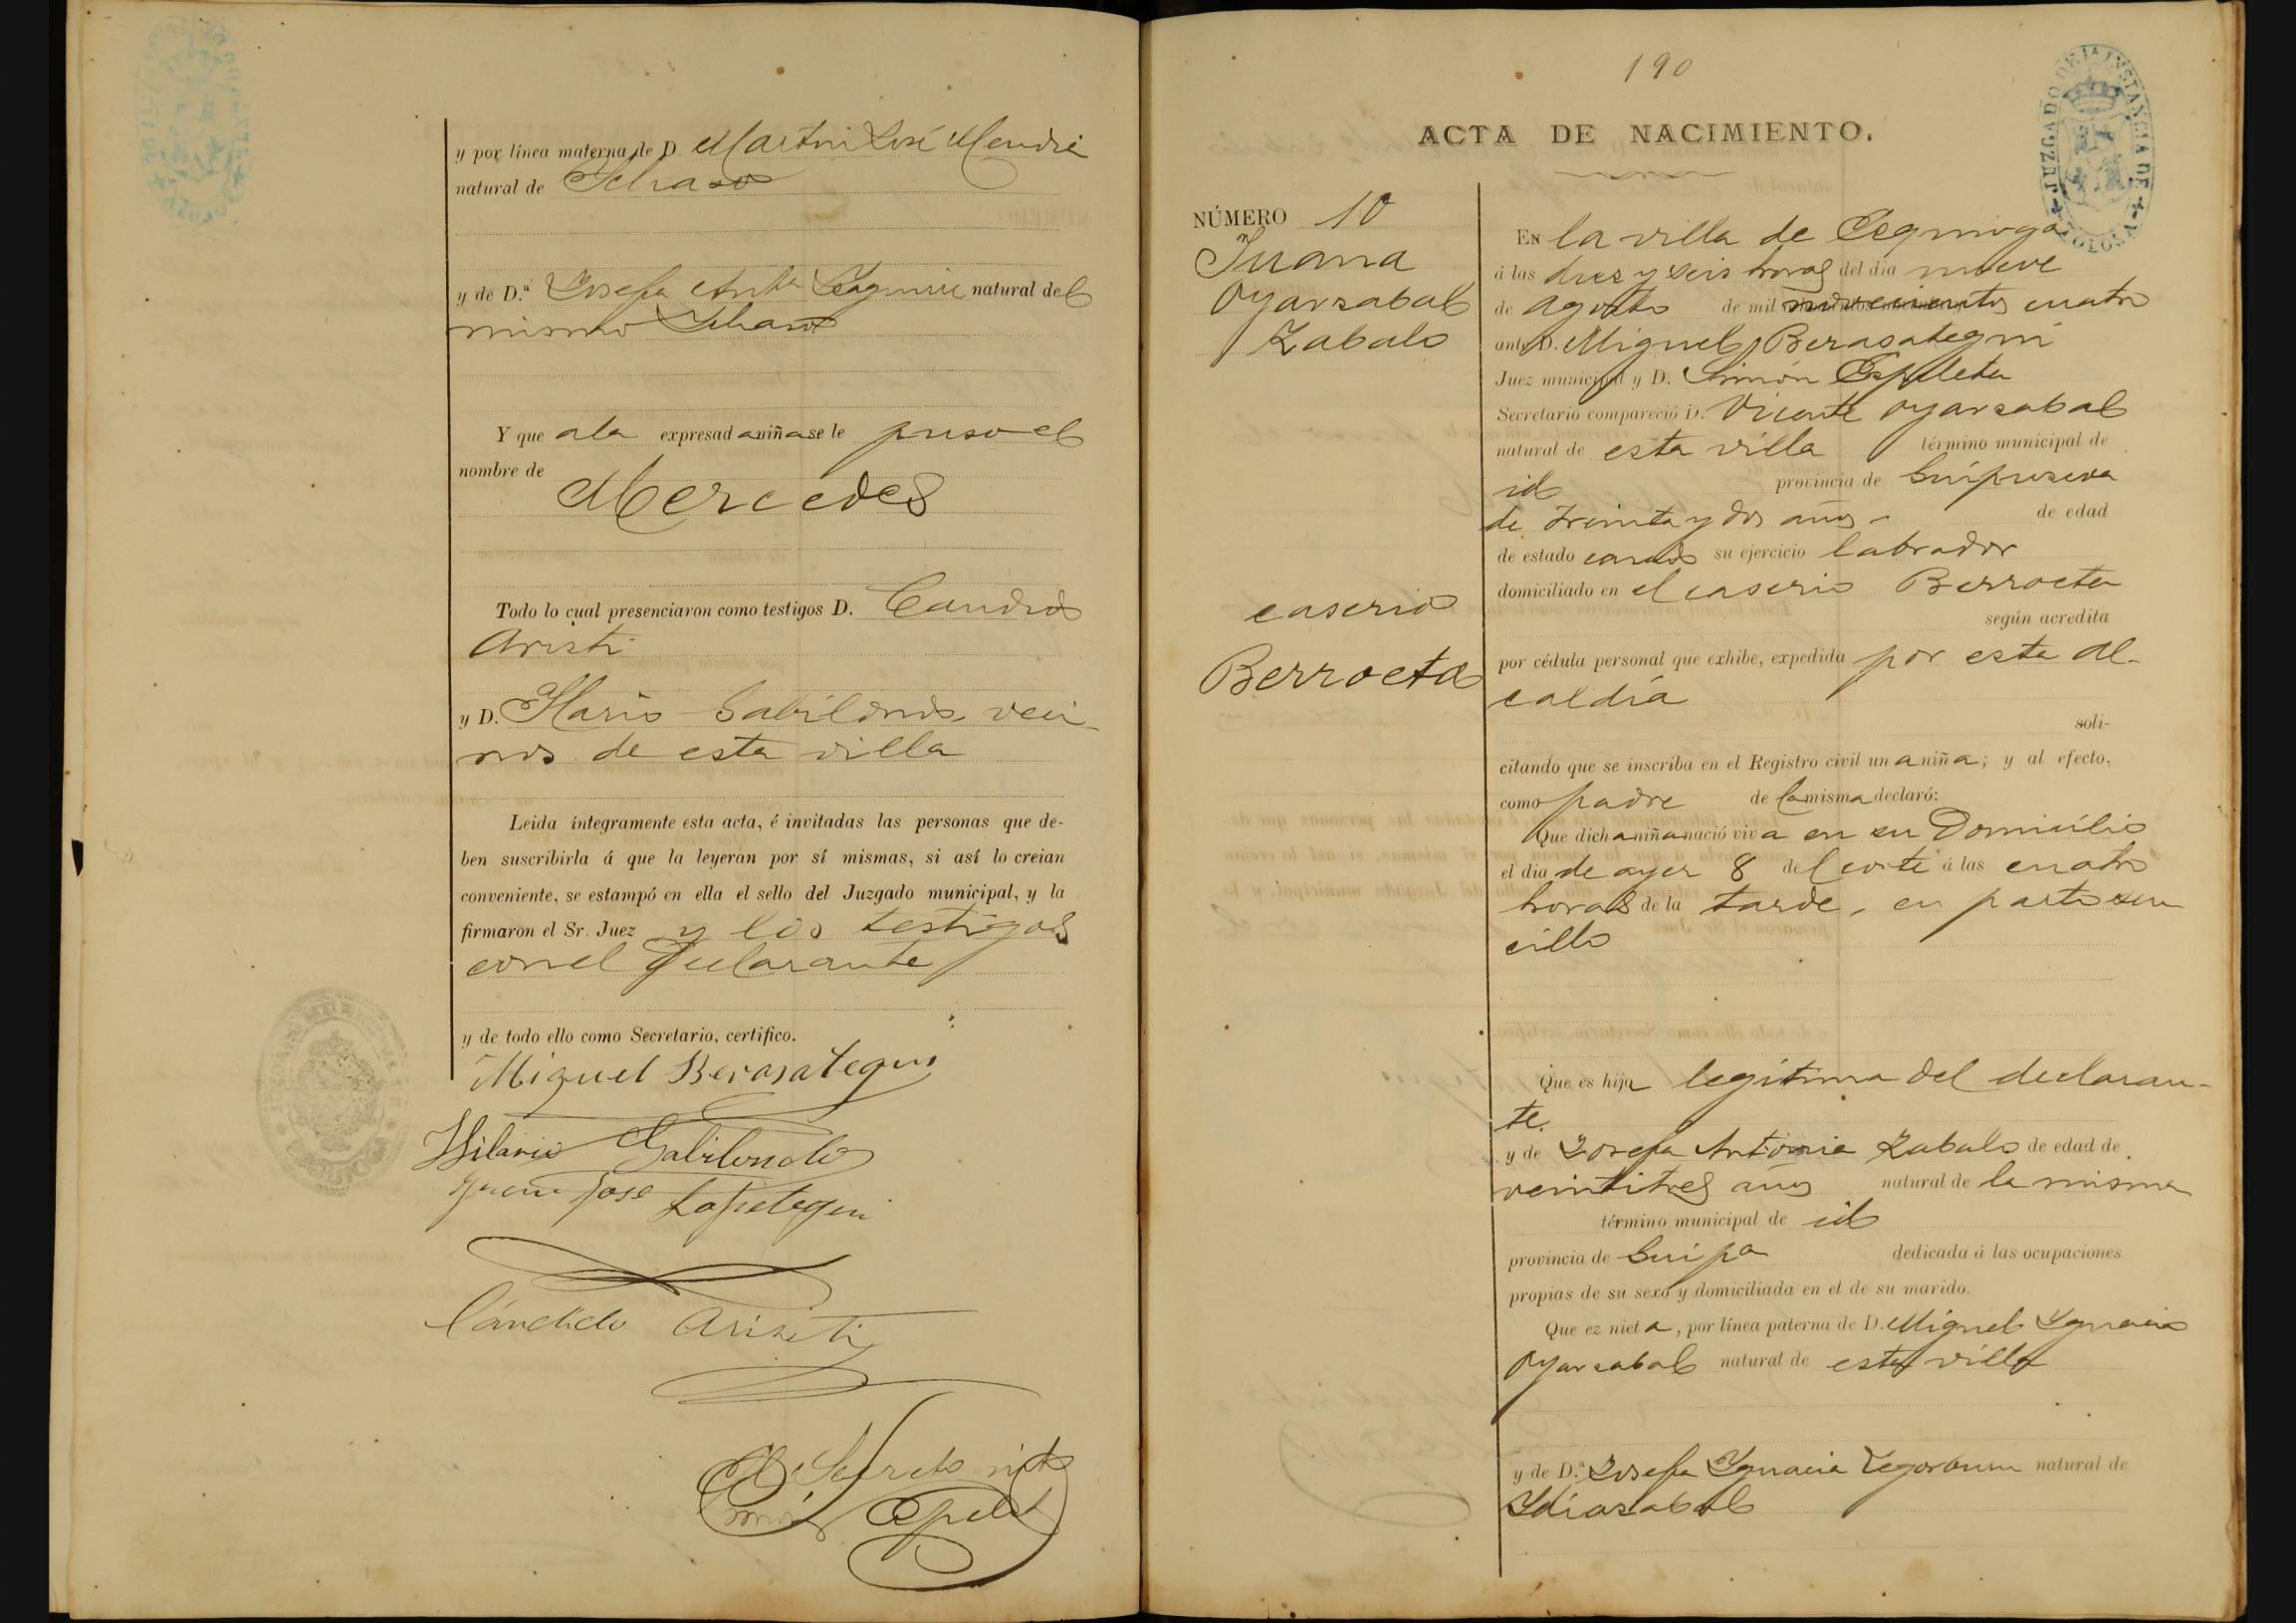 y por línea materna de D. Martin José Mendia
natural de Ichaso
y de D.ª Josefa Anta natural del
mismo Ichaso
Y que a la expresada niña se le puso el
nombre de
Mercedes
Todo lo cual presenciaron como testigos D. Candido
Aristi
y D. Hario Gabilondo, veci-
nos de esta villa
Leida íntegramente esta acta, é invitadas las personas que de-
ben suscribirla á que la leyeran por sí mismas, si así lo creian
conveniente, se estampó en ella el sello del Juzgado municipal, y la
firmaron el Sr. Juez y los testigos
con el declarante
y de todo ello como Secretario, certifico.
Miguel Berasategui
Hilario Gabilondo
Juan José Lopetegui
Cándido Aristi
190
JUZGADO DE 1ª INSTANCIA DE TOLOSA
ACTA DE NACIMIENTO.
NÚMERO 10
Juana
Oyarzabal
Zabalo
caserio
Berroeta
EN la villa de Ezquioga
á las diez y seis horas del dia nueve
de Agosto de mil novecientos cuatro
ante D. Miguel Berasategui
Juez municipal y D. Simón Espeleta
Secretario compareció D. Vicente Oyarzabal
natural de esta villa término municipal de
id provincia de Guipuzcoa
de treinta y dos años de edad
de estado casado su ejercicio labrador
domiciliado en el caserio Berroeta
según acredita
por cédula personal que exhibe, expedida por esta Al-
caldía
soli-
citando que se inscriba en el Registro civil una niña; y al efecto,
como padre de la misma declaró:
Que dicha niña nació viva en su Domicilio
el dia de ayer 8 del corte á las cuatro
horas de la tarde, en parto sen
cillo
Que es hija legítima del declaran-
te.
y de Josefa Antonia Zabalo de edad de
veintitres años natural de la misma
término municipal de id
provincia de Guipa dedicada á las ocupaciones
propias de su sexo y domiciliada en el de su marido.
Que ez nieta, por línea paterna de D. Miguel Ygnacio
Oyarzabal natural de esta villa
y de D.ª Josefa Ygnacia Tegorburu natural de
Ydiazabal